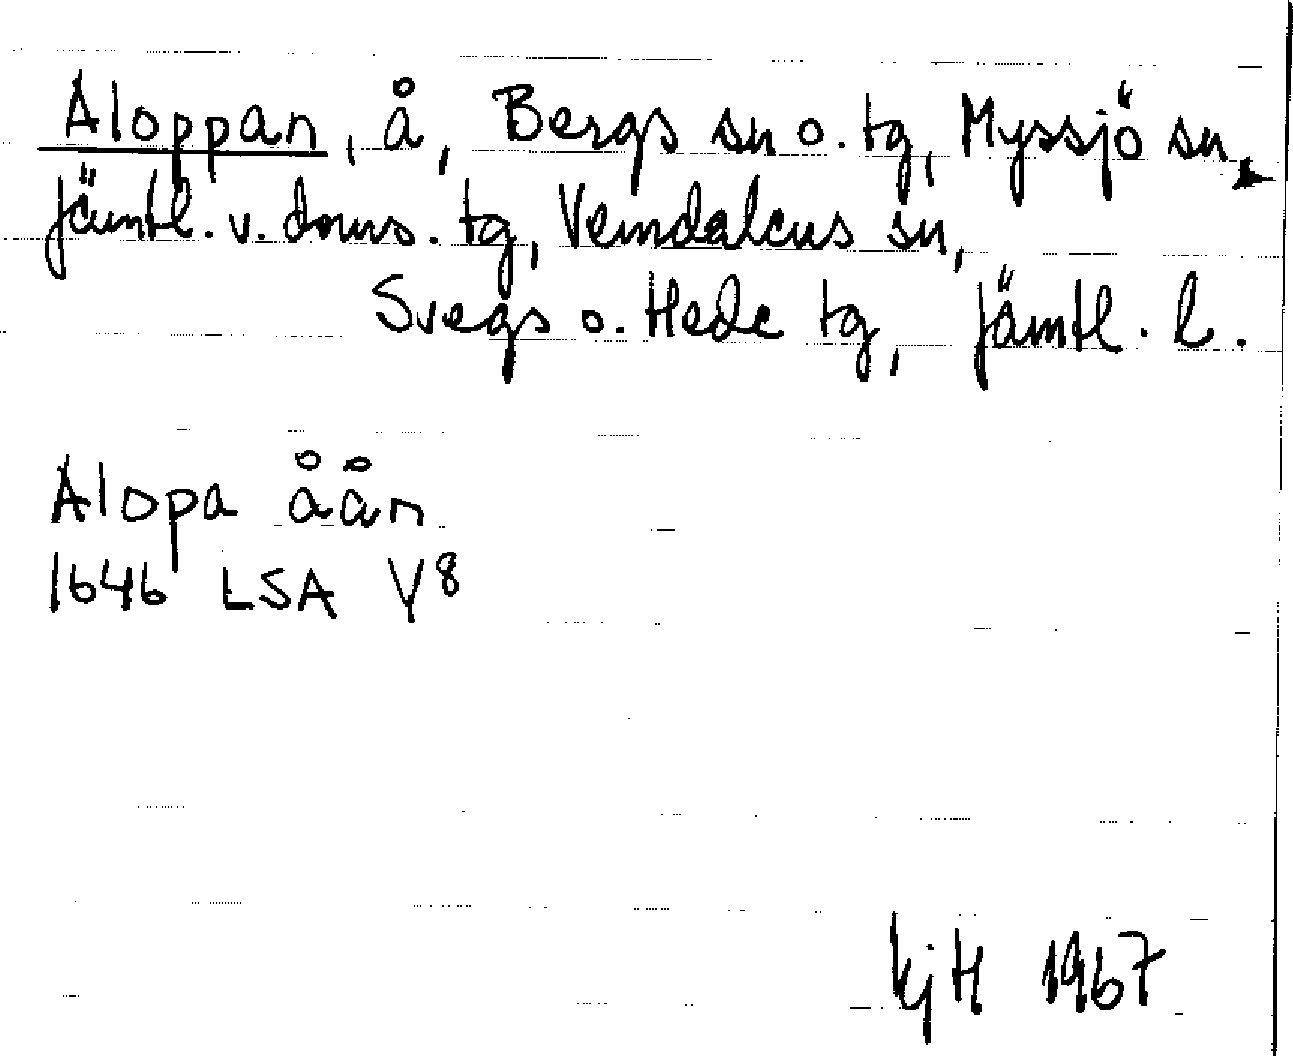 Aloppan, å, Bergs sn o. tg, Myssjö sn,
Jämtl. v. doms. tg, Vemdalens sn,
Svegs o. Hede tg, Jämtl. l.
Alopa åån
1646 LSA Y8
KjH 1967